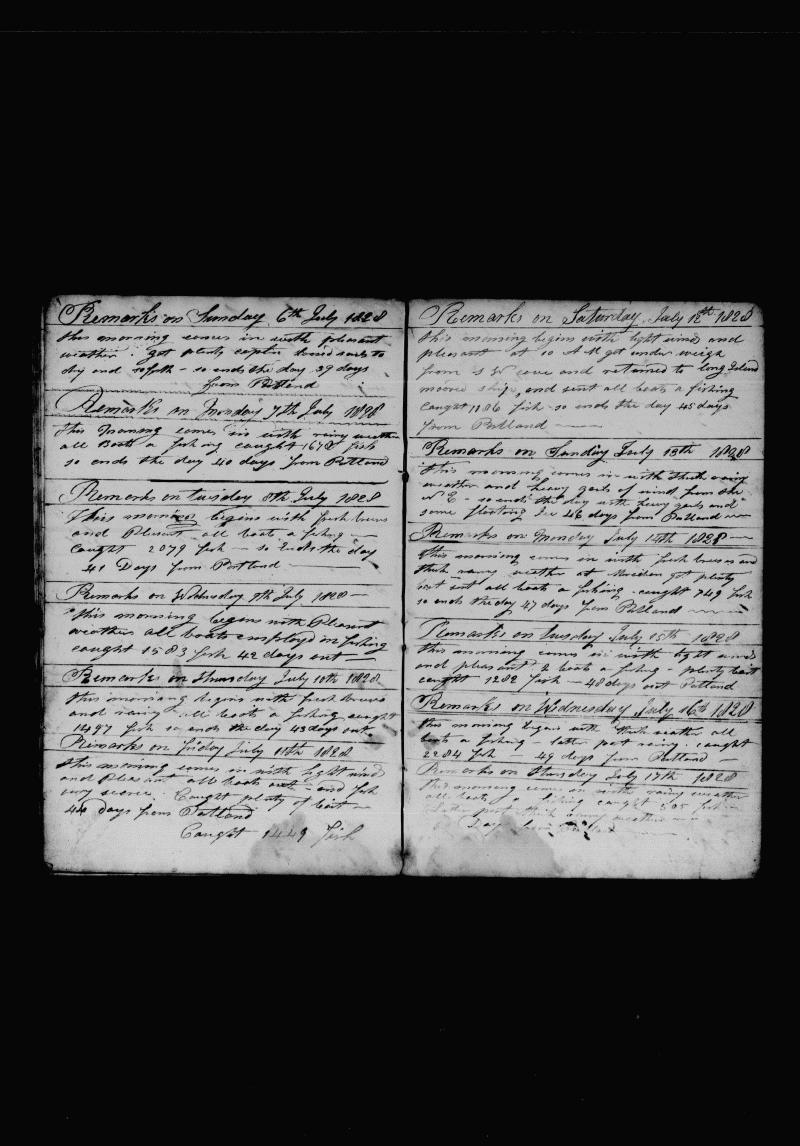 Remarks on Sunday 6th July 1828
this morning comes in with pleasant
weather got plenty caplin loosed sails to
dry and so ends the day 39 days
from Portland
Remarks on Monday 7th July 1828
This Morning comes in with rainy weather
all Boats a fishing caught 1678 fish
so ends the day 40 days from Portland
Remarks on tuesday 8th July 1828
This morning begins with fresh breeses
and Plesent all boats a fishing
caught 2079 fish – so Ends the day
41 Days from Portland
Remarks on Wednesday 9th July 1828
This morning begins with Pleasent
weather all boats employd in fishing
caught 1583 fish 42 days out
Remarks on thursday July 10th 1828
this morning begins with fresh breeses
and rainy all boats a fishing caught
1497 fish so ends the day 43 days out
Remarks on friday July 11th 1828
this morning comes in with light winds
and Pleasant all boats out and fish
very scarce Caught plenty of bait
44 days from Portland
Caught 1449 fish
Remarks on Saturday July 12th 1828
this morning begins with light winds and
pleasant at 10 A M got under weigh
from S W cove and returned to long Island
moored ship, and sent all boats a fishing
Caught 1186 fish so ends the day 45 days
from Portland
Remarks on Sunday July 13th 1828
This morning comes in with thick rainy
weather and heavy gails of wind from the
N E – so ends the day with heavy gails and
some floating Ice 46 days from Portland
Remarks on Monday July 14th 1828
this morning comes in with fresh breeses and
thick rainy weather at Meridian got plenty
bait sent all boats a fishing caught 749 fish
so ends the day 47 days from Portland
Remarks on tuesday July 15th 1828
this morning comes in with light winds
and pleasant boats a fishing – plenty bait
caught 1282 fish – 48 days out Portland
Remarks on Wednesday July 16th 1828
this morning begins with thick weather all
boats a fishing – latter part rainy caught
2284 fish 49 days from Portland
Remarks on thursday July 17th 1828
this morning comes in with rainy weather
all boats a fishing caught 505 fish
latter part thick rainy weather
Days from Portland